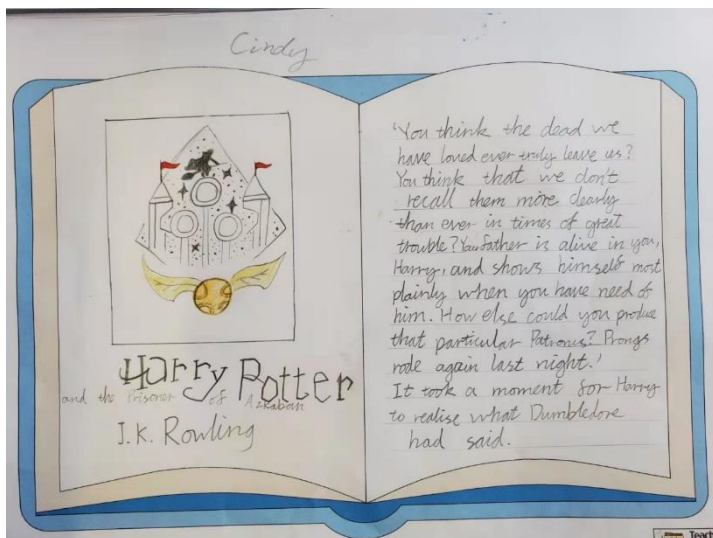 Cindy
Harry Potter
and the Prisoner of Azkaban
J.K. Rowling
'You think the dead we
have loved ever truly leave us?
You think that we don't
recall them more clearly
than ever in times of great
trouble? Your father is alive in you,
Harry, and shows himself most
plainly when you have need of
him. How else could you produce
that particular Patronus? Prongs
rode again last night.'
It took a moment for Harry
to realise what Dumbledore
had said.
Teach